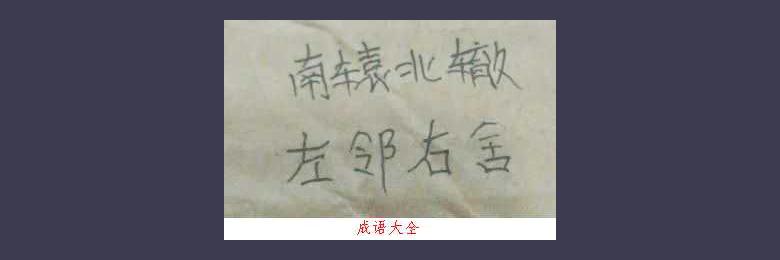 南辕北辙
左邻右舍
成语大全